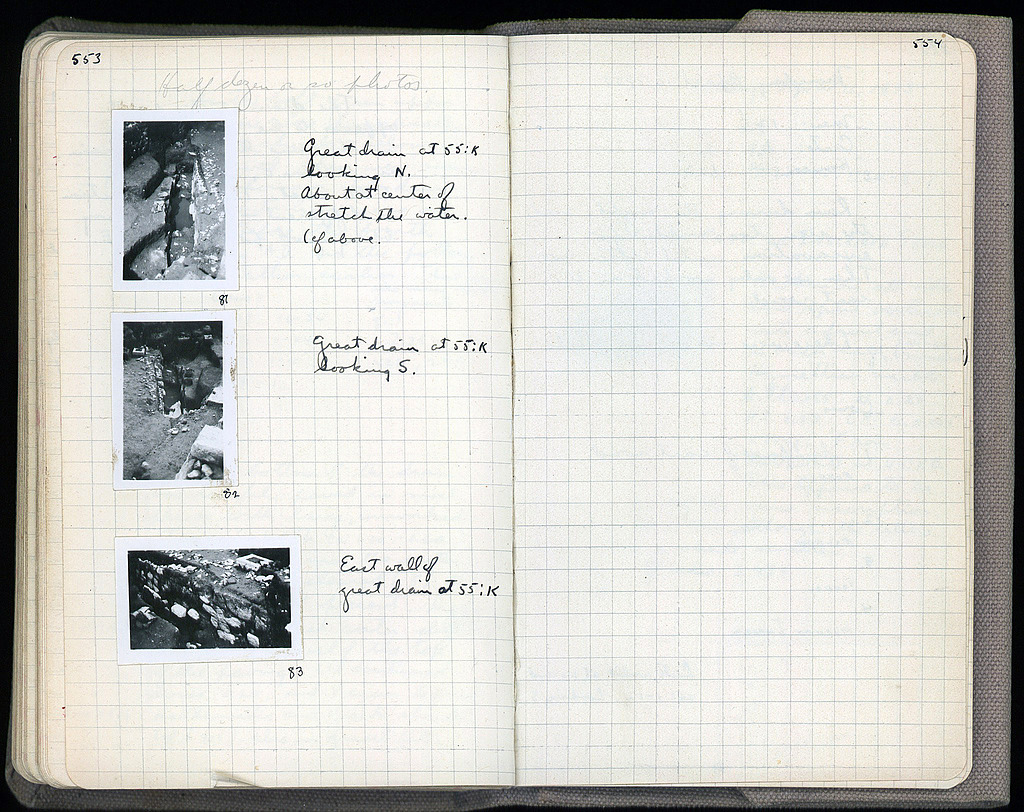 553
Half dozen or so photos.
Great drain at 55:K
looking N.
About at center of
stretch the water.
Cf above.
81
Great drain at 55:K
looking S.
82
East wall of
great drain at 55:K
83
554